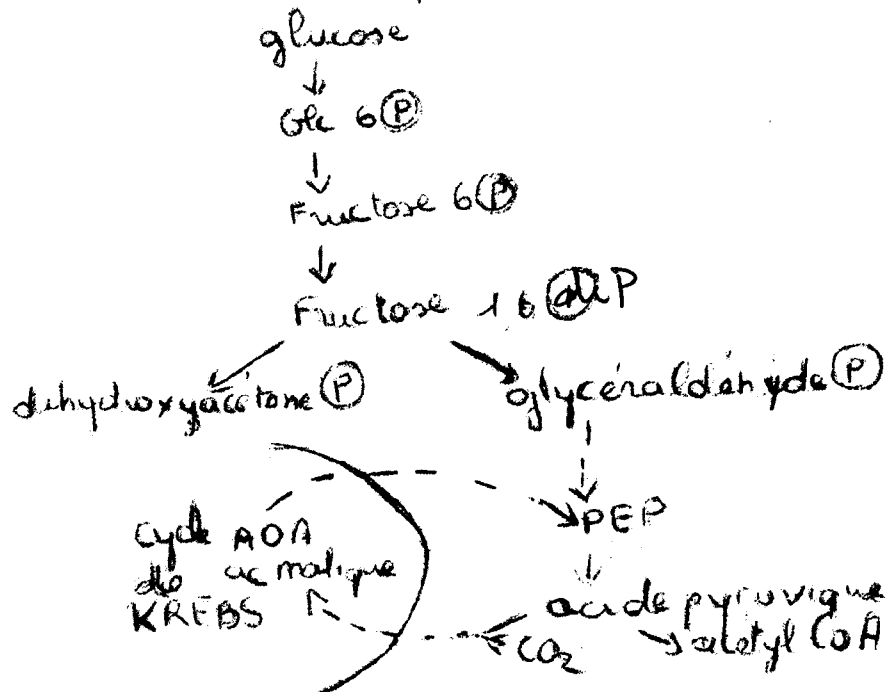 glucose
Glc 6 P
Fructose 6 P
Fructose 1 6 di P
dihydroxyacétone P
glycéraldéhyde P
PEP
cycle AOA
de ac malique
KREBS
acide pyruvique
CO₂
acétyl CoA